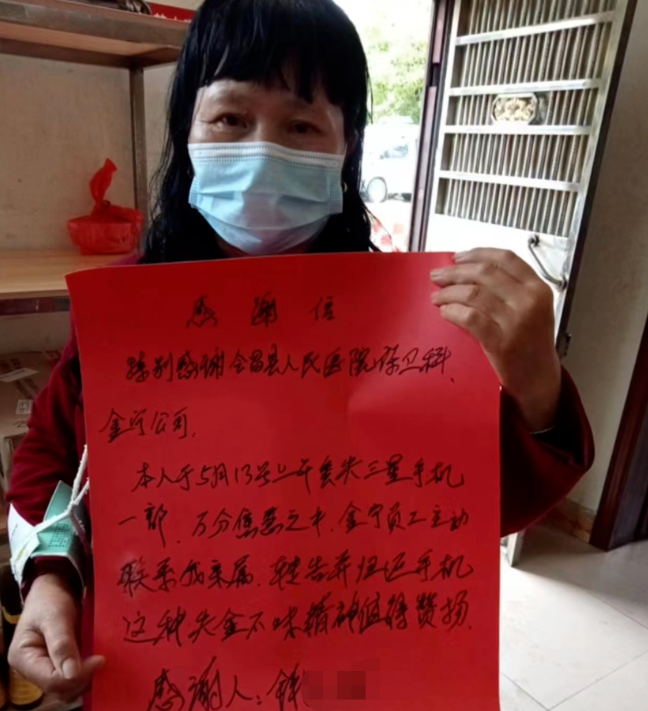 感谢信
特别感谢会昌县人民医院保卫科、
金宁公司.
本人于5月13号上午丢失三星手机
一部.万分焦急之中.金宁员工主动
联系我亲属.转告并归还手机
这种失金不昧精神值得赞扬.
感谢人:钟